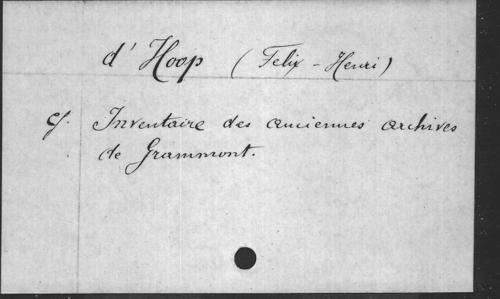 d' Hoop (Felix - Henri)
cf. Inventaire des anciennes archives
de Grammont.